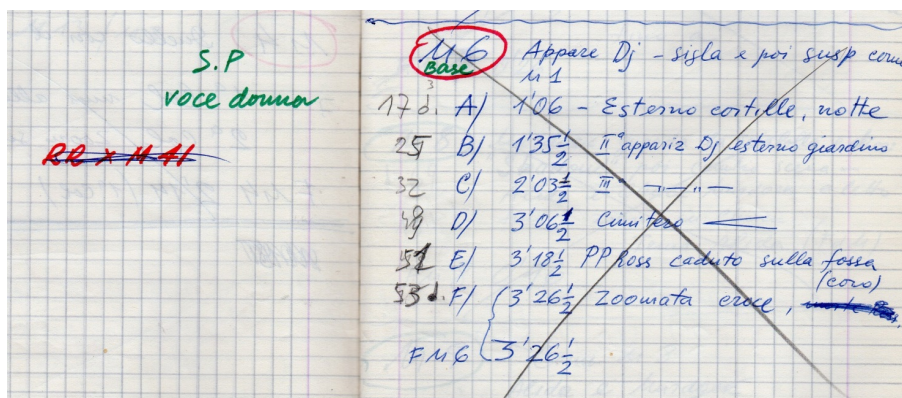 S.P
voce donna
RR x M 41
M 6 Appare Dj - sigla e poi susp come
Base M 1
17 d. A) 1'06 - Esterno cortille, notte
25 B) 1'35 1/2 IIª appariz Dj esterno giardino
32 C) 2'03 1/2 IIIª —"—
49 D) 3'06 1/2 Cimitero
51 E) 3'18 1/2 PP Ross caduto sulla fossa
(coro)
53 d. F) 3'26 1/2 Zoomata croce,
F M 6 3'26 1/2